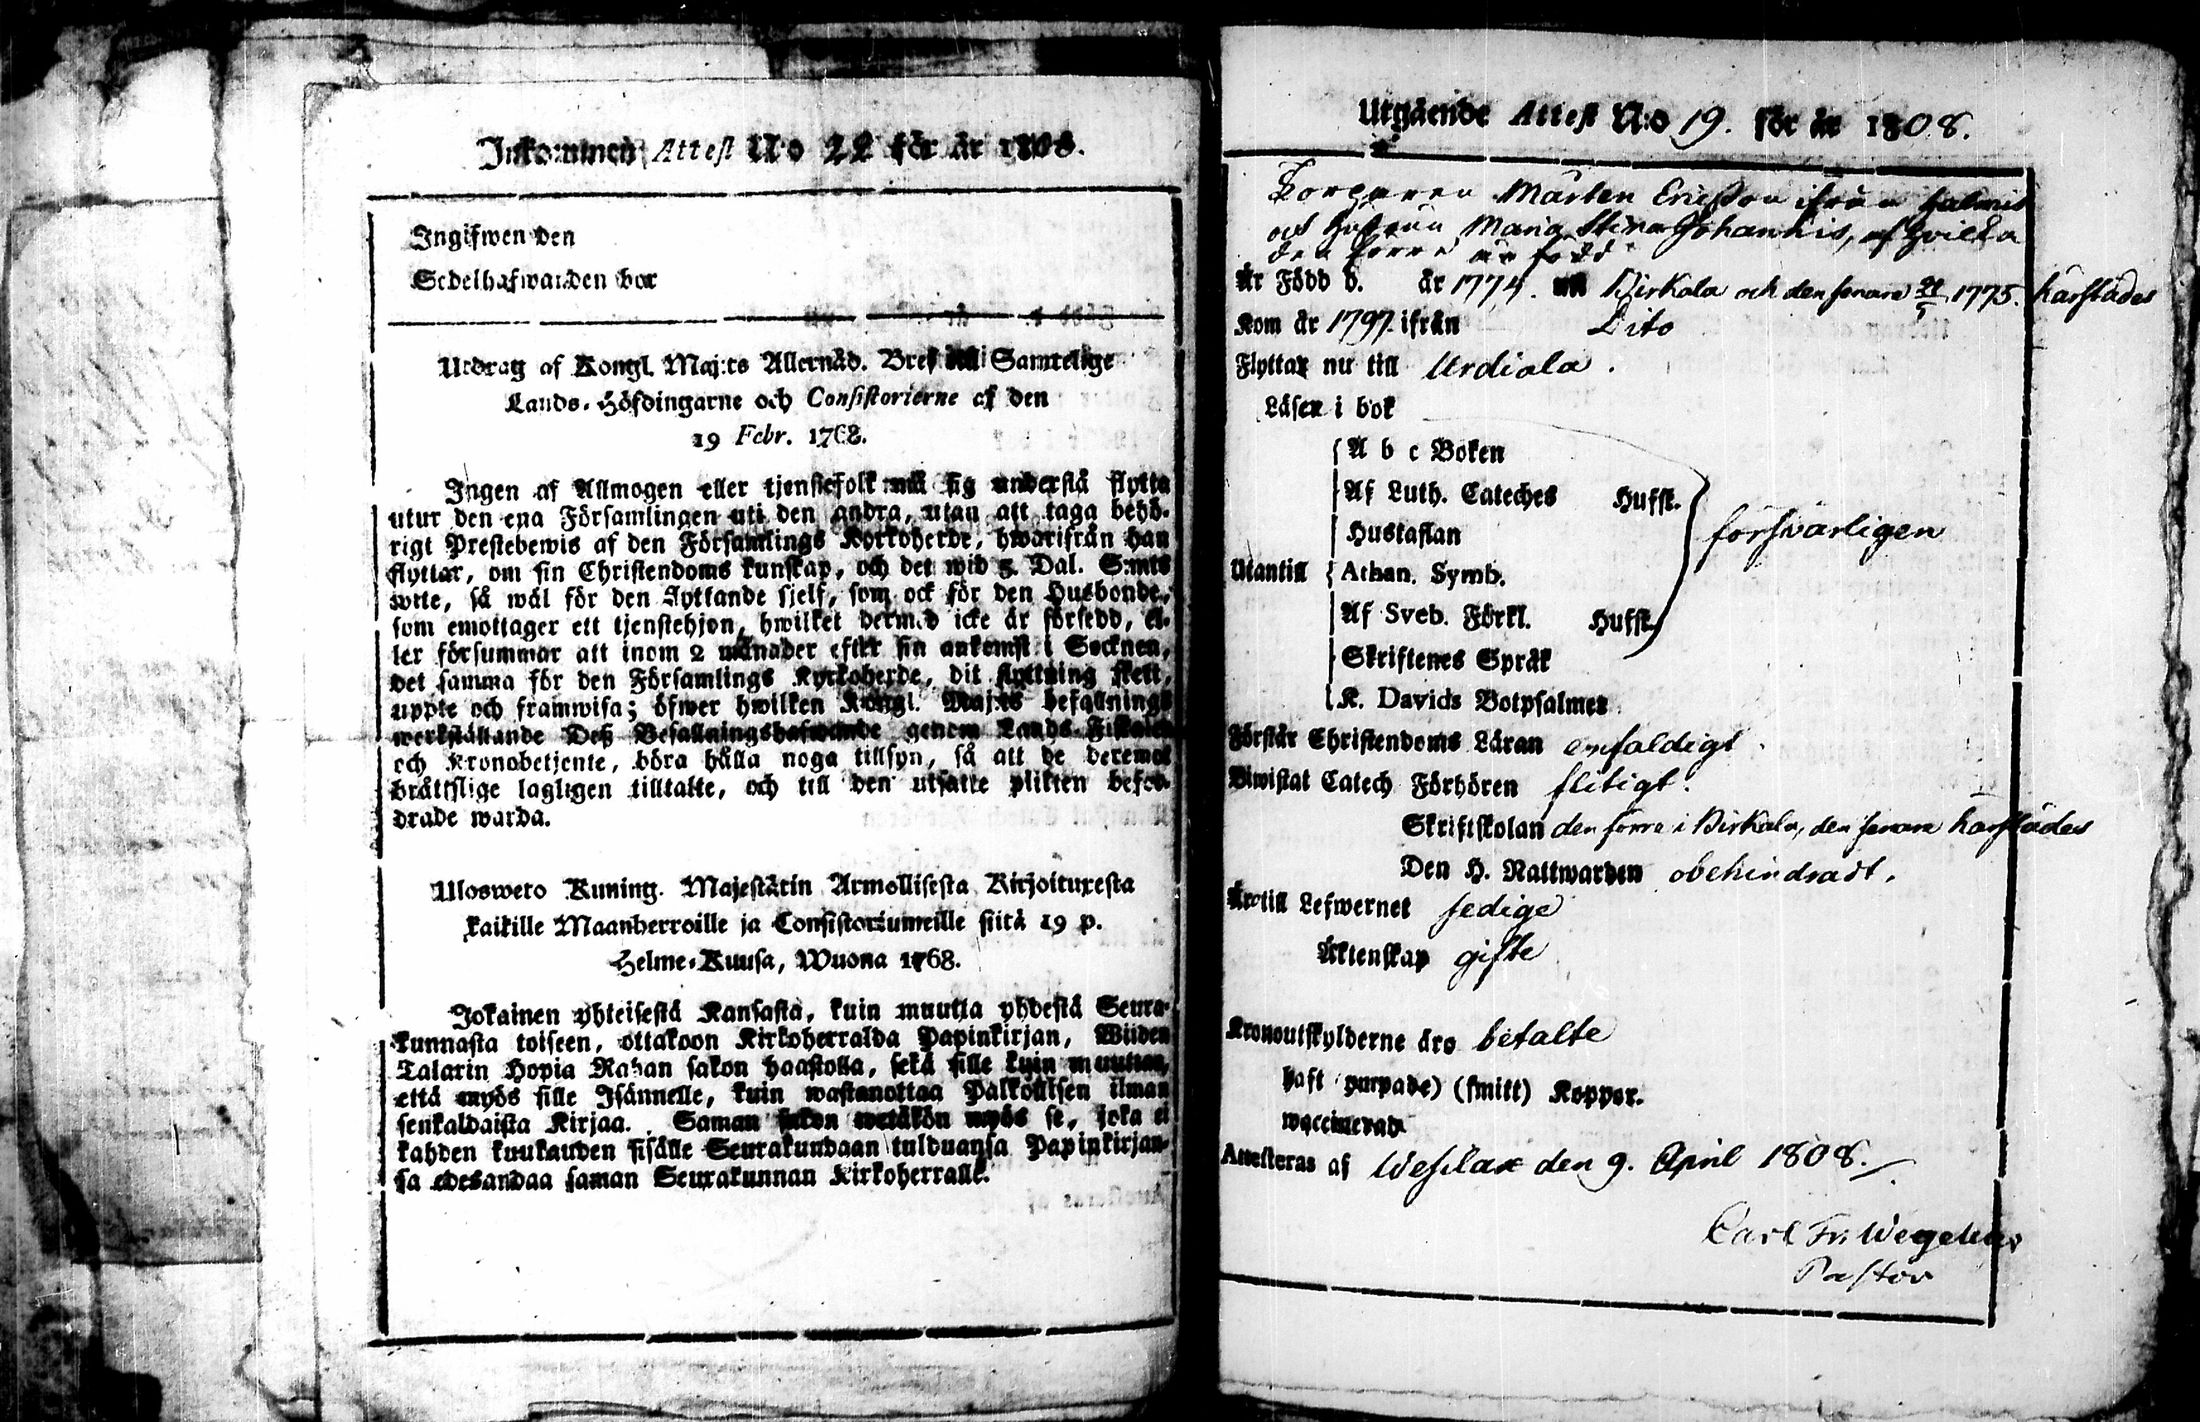 Inkommen Attest N:o 22 för år 1808.
Ingifwen den
Sedelhafwanden bor
Utdrag af Kongl. Maj:ts Allernåd. Bref till Samtelige
Lands-Höfdingarne och Consistorierne af den
19 Febr. 1768.
Ingen af Allmogen eller tjenstefolk må sig understå flytta
utur den ena Församlingen uti den andra, utan att taga behö-
rigt Prestebewis af den Församlings Kyrkoherde, hwarifrån han
flyttar, om sin Christendoms kunskap, och det wid 5. Dal. S:mts
wite, så wäl för den flyttande sjelf, som ock för den Husbonde,
som emottager ett tjenstehjon, hwilket dermed icke är försedd, el-
ler försummar att inom 2 månader efter sin ankomst i Socknen,
det samma för den Församlings Kyrkoherde, dit flyttning skett,
uppte och framwisa; öfwer hwilken Kongl. Maj:ts befallnings
werkställande Deß Befallningshafwande genom Lands-Fiskaler
och Kronobetjente, böra hålla noga tillsyn, så att de deremot
bråttslige lagligen tilltalte, och till den utsatte plikten befor-
drade warda.
Ulosweto Kuning. Majestätin Armollisesta Kirjoituxesta
kaikille Maanherroille ja Consistoriumeille siitä 19 p.
Helme-Kuusa, Wuona 1768.
Jokainen yhteisestä Kansasta, kuin muutta yhdestä Seura-
kunnasta toiseen, ottakoon Kirkoherralda Papinkirjan, Wiiden
Talarin Hopia Rahan sakon haastolla, sekä sille kuin muuttaa,
että myös sille Isännelle, kuin wastanottaa Palkollisen ilman
senkaldaista Kirjaa. Saman sakon wetäkön myös se, joka ei
kahden kuukauden sisälle Seurakundaan tulduansa Papinkirjan-
sa edesandaa saman Seurakunnan Kirkoherralle.
Utgående Attest N:o 19. för år 1808.
Torparen Mårten Ericßon ifrån
och Hustrun Maria Stina Johannis, af hvilka
den förre är född
Är Född d. år 1774. uti Birkala och den senare 21/5 1775. härstädes
Kom år 1797. ifrån Dito
Flyttar nu till Urdiala.
Läser i bok
A b c Boken
Af Luth. Cateches Hufst.
Hustaflan
Utantill Athan. Symb.
Af Sveb. Förkl. Hufst.
Skriftenes Språk
K. Davids Botpsalmer
försvarligen
Förstår Christendoms Läran enfaldigt
Biwistat Catech Förhören flitigt.
Skriftskolan den förre i Birkala, den senare härstädes
Den H. Nattwarden obehindradt.
Äro till Lefwernet sedige
Äktenskap gifte
Kronoutskylderne äro betalte
haft (ympade) (smitt) Koppor.
waccinerad
Attesteras af Wesilax den 9. April 1808.
Carl Fr. Wegelius
Pastor